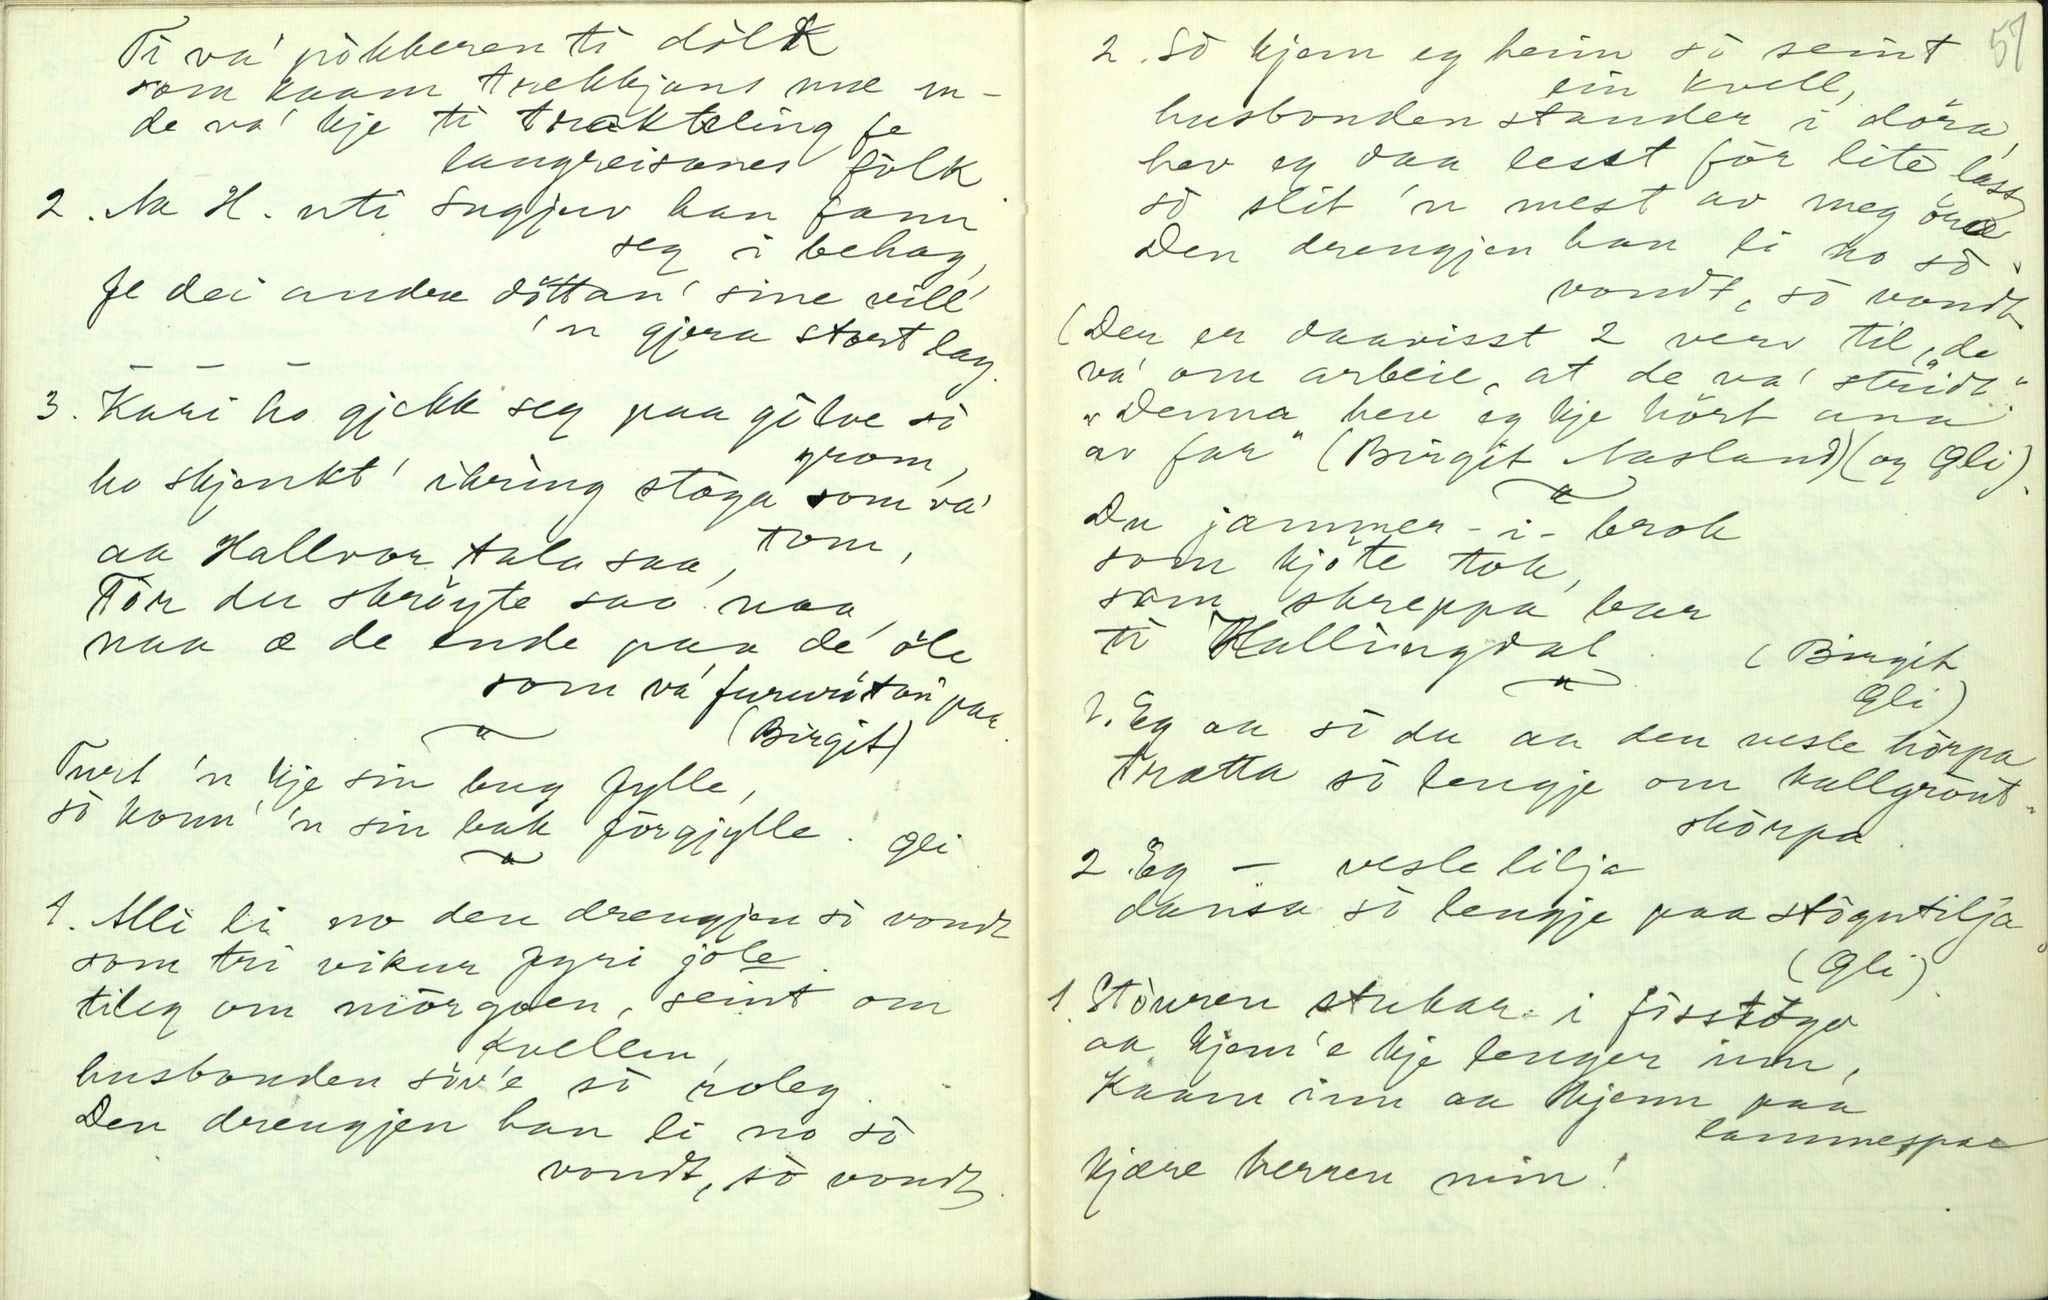 Ti va' pòkkeren ti dòlk
som kaam trekkjans mæ en-
de va' kje ti trakteling fe
langreisanes fòlk
2. Aa H. uti Sugjuv han fann
seg i behag,
fe dei andre döttan' sine vill'
'n gjera stort lag.
– – –
3. Kari ho gjekk seg paa gòlve sò
grom,
ho skjenkt' ikring stoga som va'
tom,
aa Hallvor tala saa,
Tòr du skröyte saa naa,
naa æ de ende paa de' öle
som va' furuviötan paa
(Birgit)
Turt 'n kje sin bug fylle,
sò konn' 'n sin bak fòrgjylle. Gli
1. Alli li no den drengjen sò vondt
som tri vikur fyri jole.
tileg om mòrgoen, seint om
kvellen,
husbonden söv'e sò roleg.
Den drengjen han li no sò
vondt, sò vondt.
57
2. Sò kjem eg heim sò seint
ein kvell,
husbonden stander i döra,
hev eg daa lesst fòr lite lass
sò slit 'n mest av meg öyra
Den drengjen han li no sò
vondt, sò vondt
(Der er daavisst 2 vers til, de
va' om arbeie, at de va' "stridt"
"Denna hev eg kje hört ana
av far" (Birgit Aasland) (og Gli).
Du jammer-i-brok
som kjöte tok,
som skreppa bar
ti Hallingdal. (Birgit
Gli)
1. Eg aa sò du aa den vesle hòrpa
trætta sò lengje om kallgraut-
skòrpa.
2. Eg – vesle lilja
dansa sò lengje paa stògutilja
(Gli).
1. Stòuren stukar i fisstògo
aa kjem'e kje lenger inn,
Kaam inn aa kjenn paa
lammespae
kjære herren min!